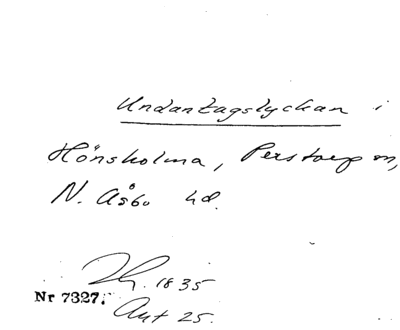 Undantagslyckan i
Hönsholma, Perstorp sn,
N. Åsbo hd.
Th. 1835
Nr 7327.
Akt 25.